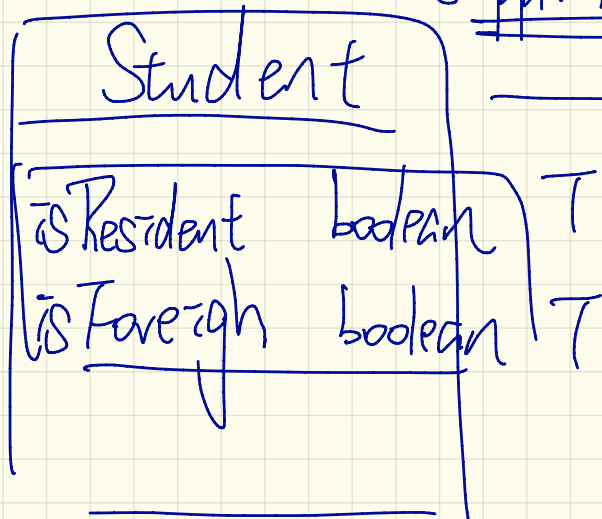 Student
isResident boolean T
isForeign boolean T